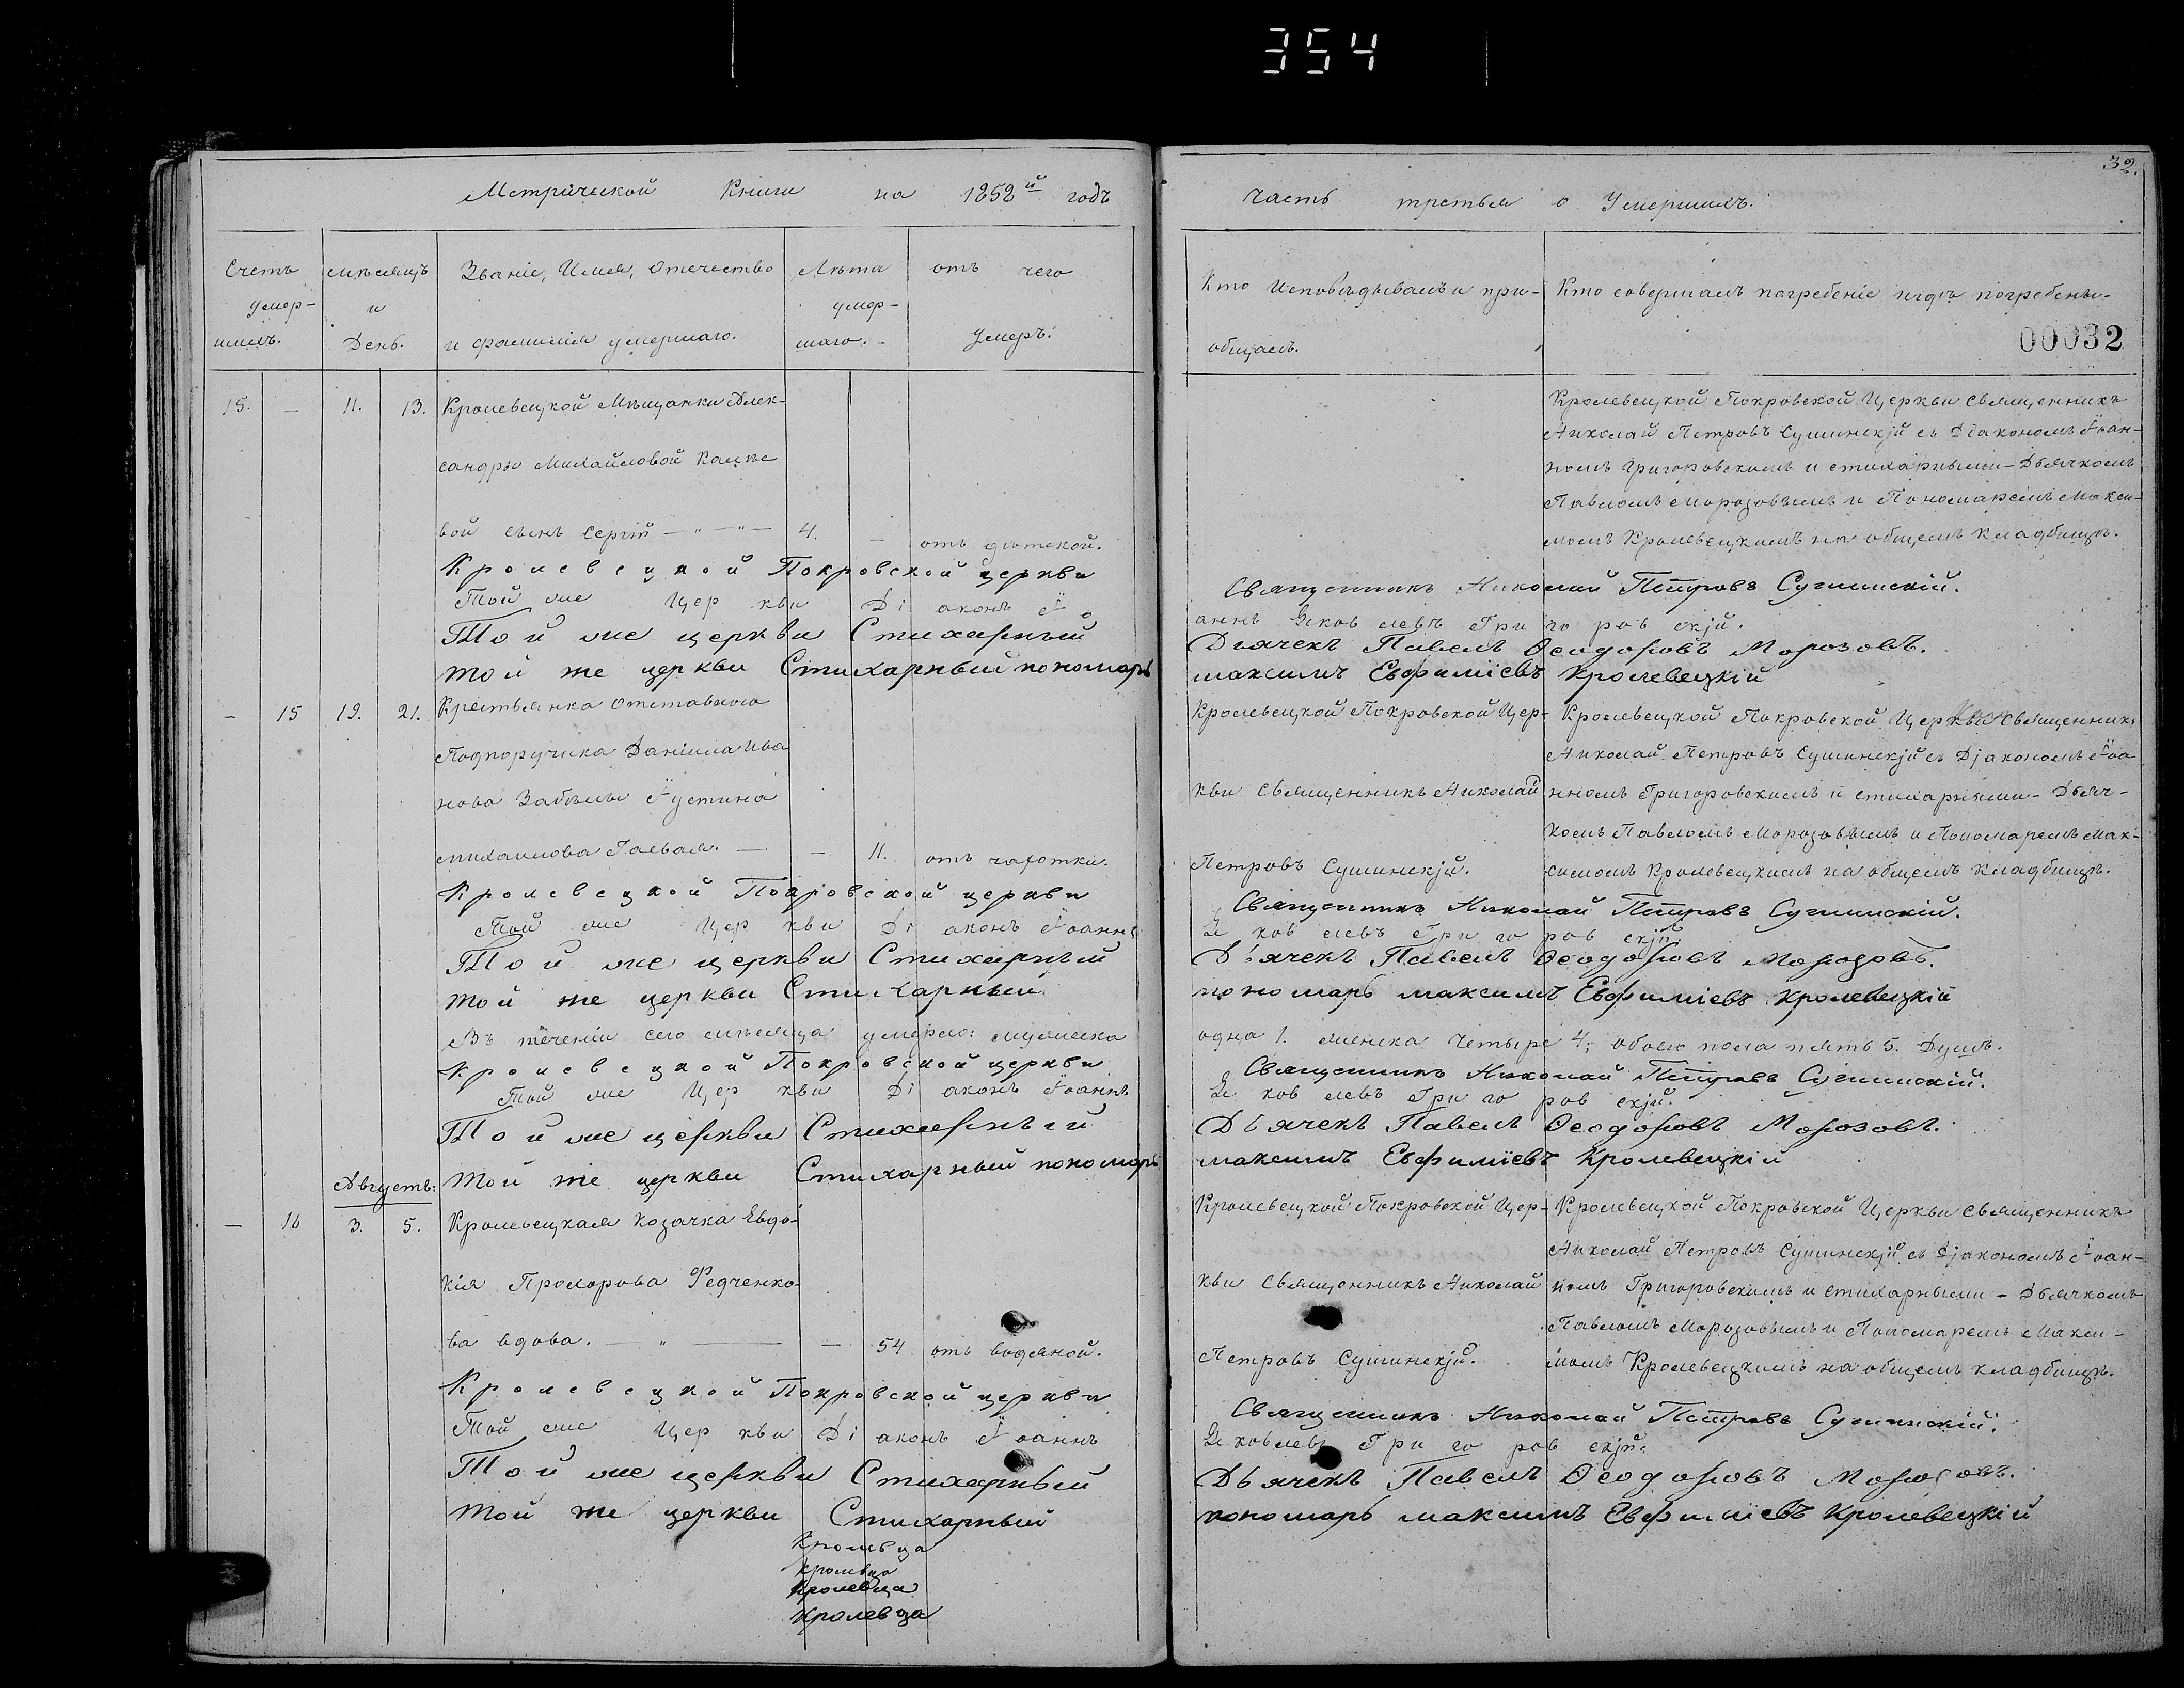 354
32.
Метрической Книги на 1852й годъ
Часть третья о Умершихъ.
Счетъ умер-шихъ.
мѣсяцъ и День.
Званіе, Имя, Отечество и фамилія умершаго.
Лѣта умер-шаго.
отъ чего умеръ.
Кто Исповѣдывалъ и при-общалъ.
Кто совершалъ погребеніе и гдѣ погребены.
00032
15. — 11. 13. Кролевецкой Мѣщанки Алек-
сандры Михайловой
вой сынъ Сергій — „ — „ — 4. — отъ дѣтской.
Кролевецкой Покровской Церкви Священникъ
Николай Петровъ Сушинскій съ Діакономъ Іоан-
номъ Григоровскимъ и стихарными – Дьячкомъ
Павломъ Морозовымъ и Пономаремъ Макси-
момъ Кролевецкимъ на общемъ кладбищѣ.
Кролевецкой Покровской церкви Священникъ Николай Петровъ Сушинскій.
Той же Церкви Діаконъ Іоаннъ Яковлевъ Григоровскій.
Той же церкви Стихарный Дьячекъ Павелъ Ѳеодоровъ Морозовъ.
той же церкви Стихарный пономарь максимъ Евфиміевъ Кролевецкій
— 15 19. 21. Крестьянка Отставного
Подпоручика Даніила Ива
нова Забѣлы Іустина
михаилова Гаевая. — — 11. отъ чахотки.
Кролевецкой Покровской Цер-
кви Священникъ Николай
Петровъ Сушинскій.
Кролевецкой Покровской Церкви Священникъ
Николай Петровъ Сушинскій съ Діакономъ Іоа
нномъ Григоровскимъ и стихарными – Дьяч-
комъ Павломъ Морозовымъ и Пономаремъ Мак-
симомъ Кролевецкимъ на общемъ кладбищѣ.
Кролевецкой Покровской церкви Священникъ Николай Петровъ Сушинскій.
Той же Церкви Діаконъ Іоаннъ Яковлевъ Григоровскій.
Той же церкви Стихарный Дьячекъ Павелъ Ѳеодоровъ Морозовъ.
той же церкви Стихарный пономарь максимъ Евфиміевъ Кролевецкій
Въ теченіи сего мѣсяца умерло: мужеска одна 1. женска четыре 4; обоего пола пять 5. Душъ.
Кролевецкой Покровской церкви Священникъ Николай Петровъ Сушинскій.
Той же Церкви Діаконъ Іоаннъ Яковлевъ Григоровскій.
Той же церкви Стихарный Дьячекъ Павелъ Ѳеодоровъ Морозовъ.
Той же церкви Стихарный пономарь максимъ Евфиміевъ Кролевецкій
Августъ:
— 16 3. 5. Кролевецкая Козачка Евдо-
кія Прохорова Федченко-
ва вдова. — „ — — 54 отъ водяной.
Кролевецкой Покровской Цер-
кви Священникъ Николай
Петровъ Сушинскій.
Кролевецкой Покровской Церкви Священникъ
Николай Петровъ Сушинскій съ Діакономъ Іоан-
номъ Григоровскимъ и стихарными – Дьячкомъ
Павломъ Морозовымъ и Пономаремъ Макси-
момъ Кролевецкимъ на общемъ кладбищѣ.
Кролевецкой Покровской церкви Священникъ Николай Петровъ Сушинскій.
Той же Церкви Діаконъ Іоаннъ Яковлевъ Григоровскій.
Той же церкви Стихарный Дьячекъ Павелъ Ѳеодоровъ Морозовъ.
той же церкви Стихарный пономарь максимъ Евфиміевъ Кролевецкій
Кролевца
Кролевца
Кролевца
Кролевца